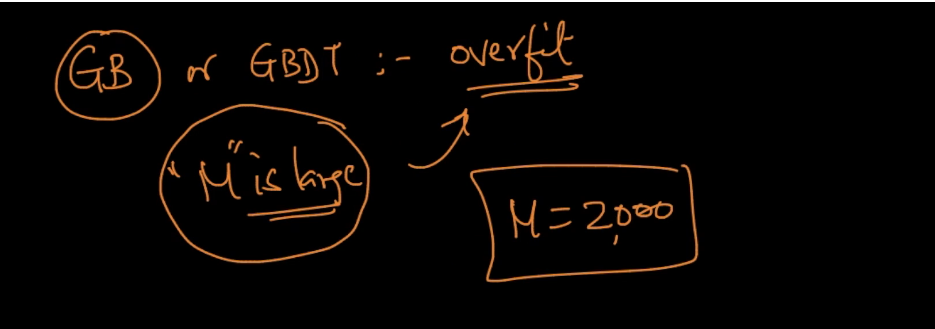 GB or GBDT :- overfit
"M" is large
M = 2,000